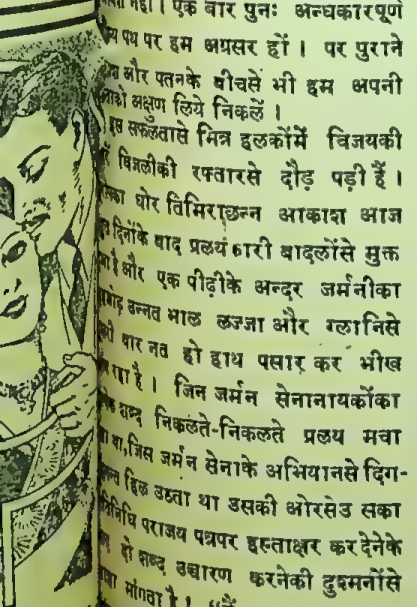 नहीं। एक बार पुनः अन्धकारपूर्ण
पथ पर हम अग्रसर हों। पर पुराने
और पतनके बीचसे भी हम अपनी
अक्षुण लिये निकलें।
इस सफलतासे मित्र हलकोंमें विजयकी
बिजलीकी रफ्तारसे दौड़ पड़ी हैं।
घोर तिमिराछन्न आकाश आज
दिनोंके बाद प्रलयंकारी बादलोंसे मुक्त
है और एक पीढ़ीके अन्दर जर्मनीका
उन्नत भाल लज्जा और ग्लानिसे
बार नत हो हाथ पसार कर भीख
रहा है। जिन जर्मन सेनानायकोंका
शब्द निकलते-निकलते प्रलय मचा
था, जिस जर्मन सेनाके अभियानसे दिग-
हिल उठता था उसकी ओरसेउ सका
पराजय पत्रपर हस्ताक्षर कर देनेके
हो शब्द उच्चारण करनेकी दुश्मनोंसे
मांगता है।